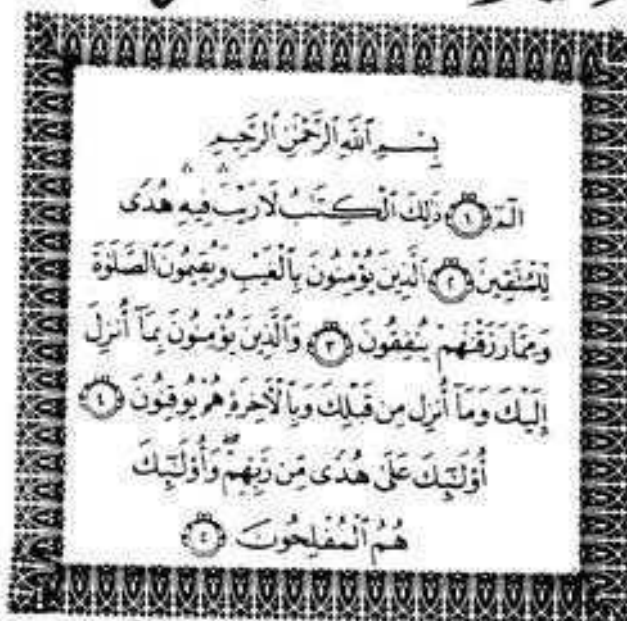 بِسْمِ ٱللَّهِ ٱلرَّحْمَٰنِ ٱلرَّحِيمِ
الٓمٓ ١ ذَٰلِكَ ٱلْكِتَٰبُ لَا رَيْبَ فِيهِ هُدًى
لِّلْمُتَّقِينَ ٢ ٱلَّذِينَ يُؤْمِنُونَ بِٱلْغَيْبِ وَيُقِيمُونَ ٱلصَّلَوٰةَ
وَمِمَّا رَزَقْنَٰهُمْ يُنفِقُونَ ٣ وَٱلَّذِينَ يُؤْمِنُونَ بِمَآ أُنزِلَ
إِلَيْكَ وَمَآ أُنزِلَ مِن قَبْلِكَ وَبِٱلْءَاخِرَةِ هُمْ يُوقِنُونَ ٤
أُو۟لَٰٓئِكَ عَلَىٰ هُدًى مِّن رَّبِّهِمْ وَأُو۟لَٰٓئِكَ
هُمُ ٱلْمُفْلِحُونَ